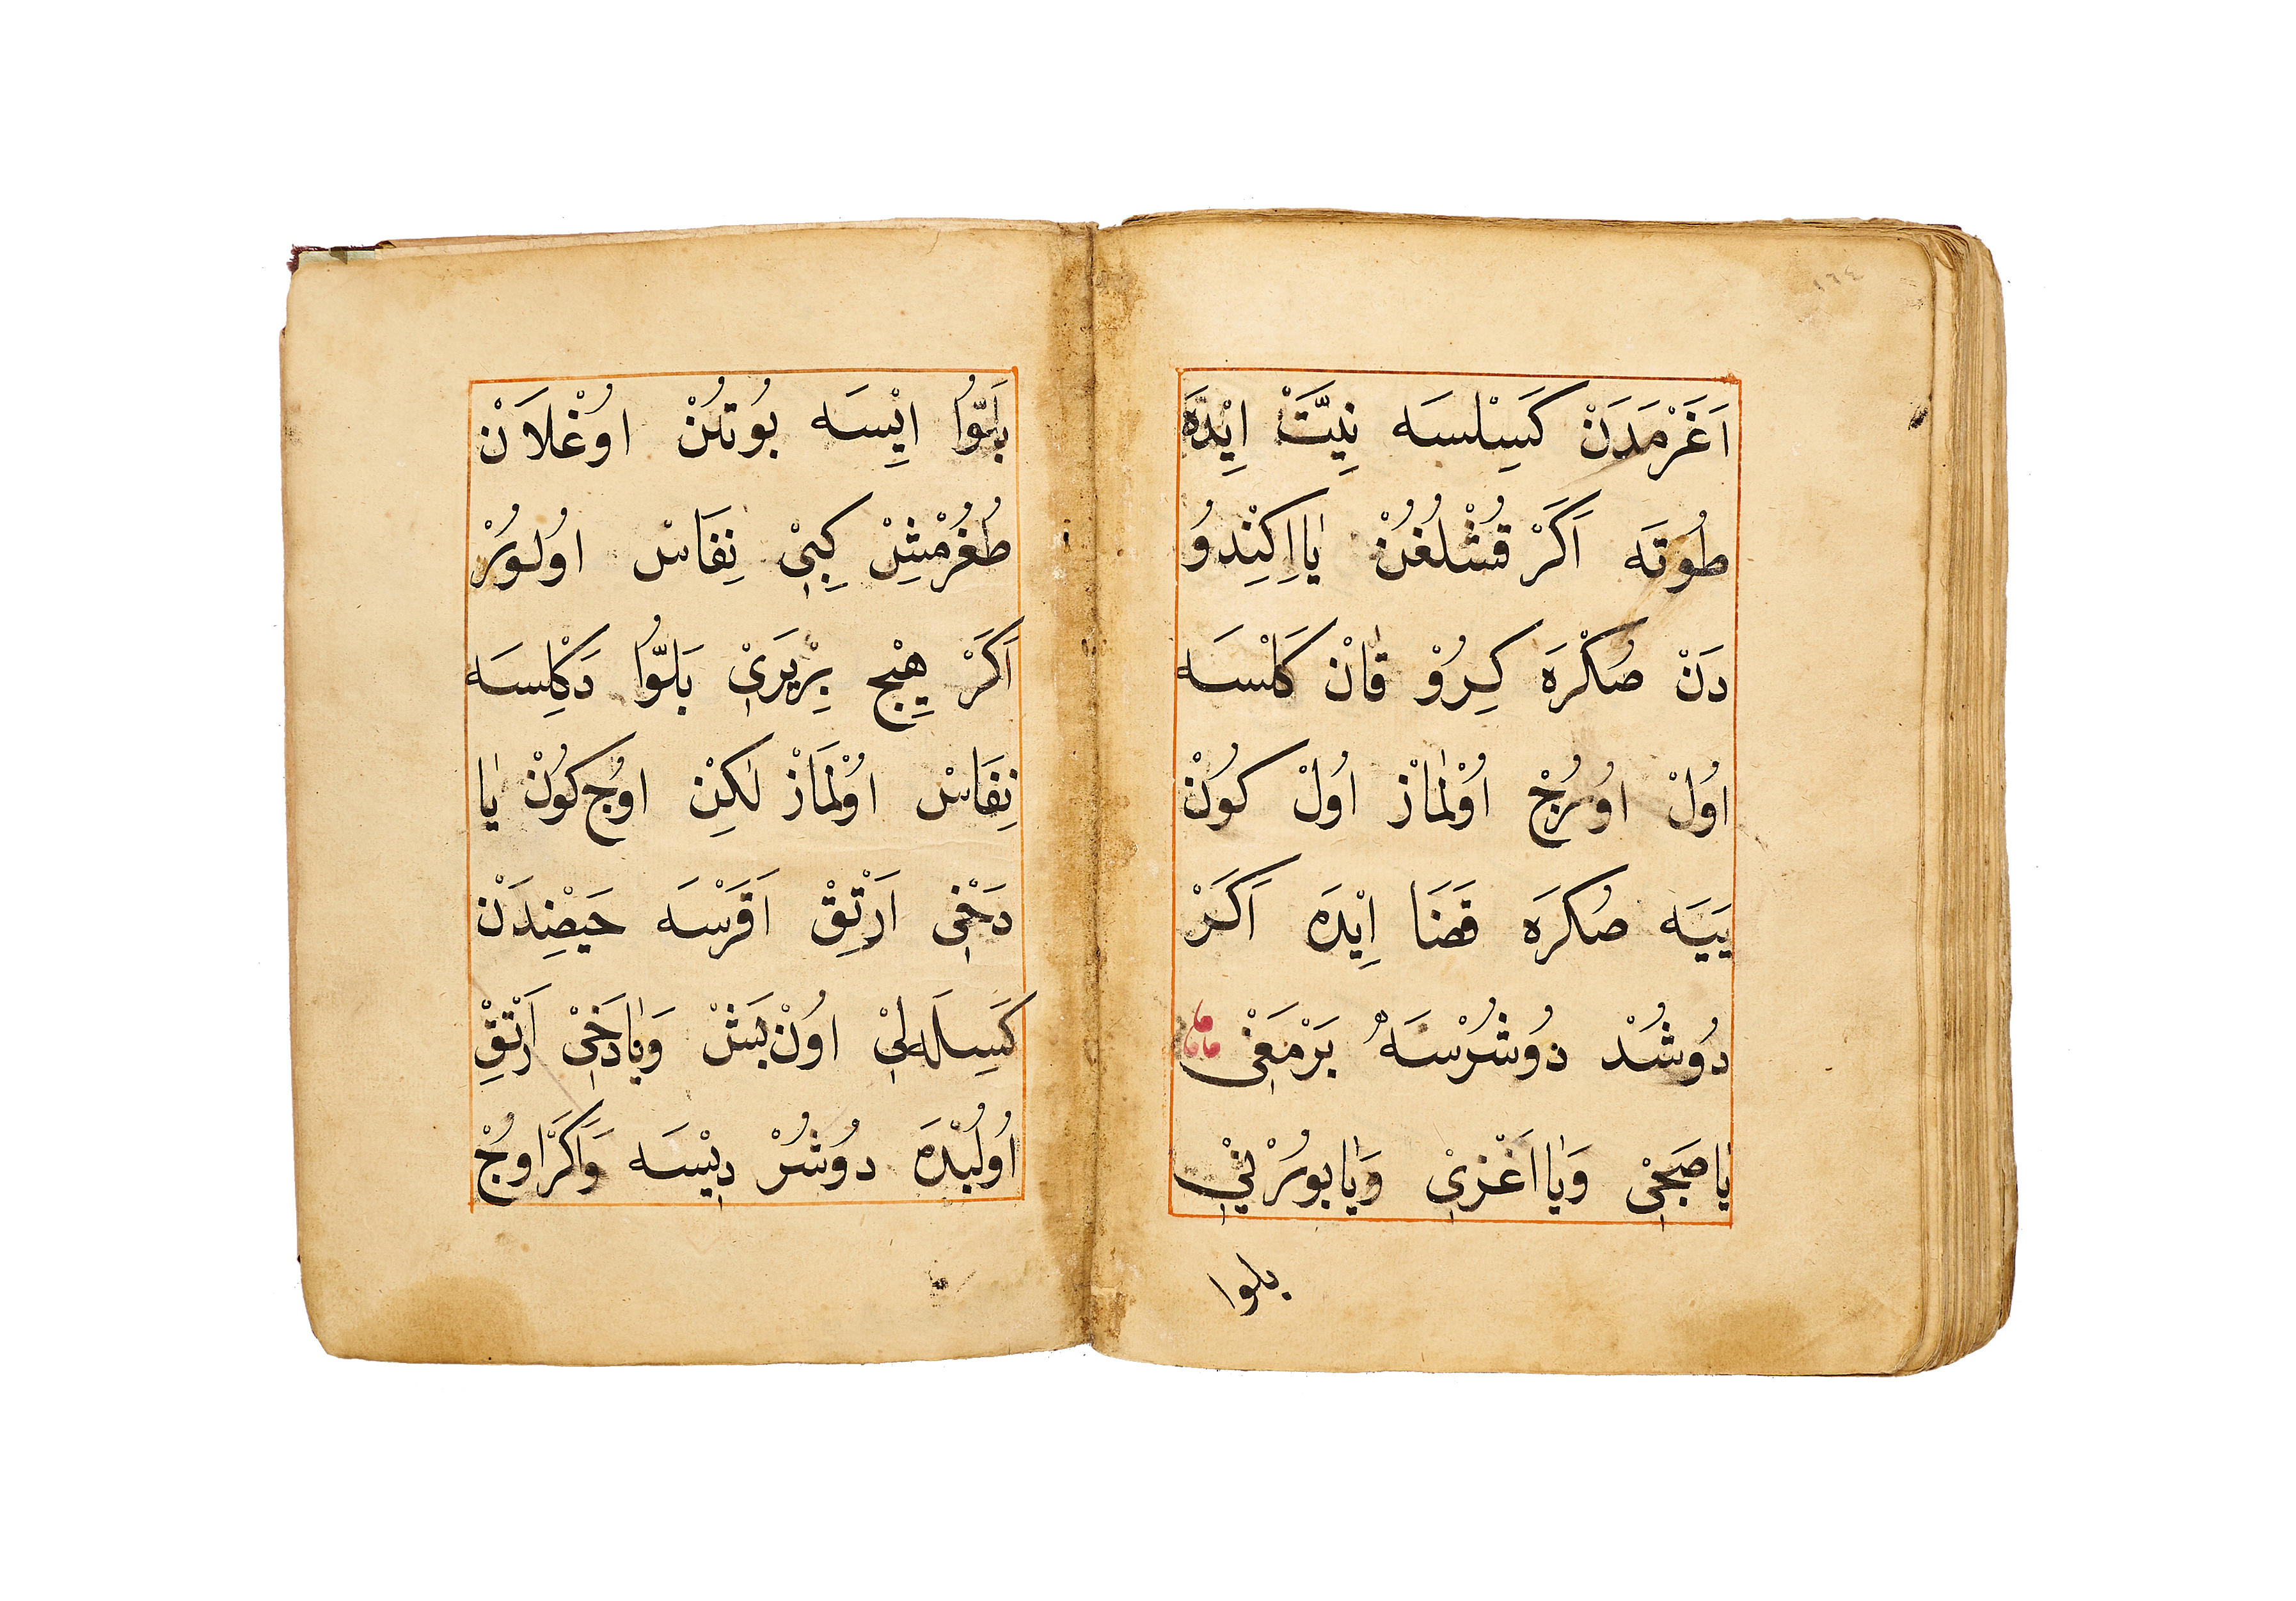 ١٦٤
اَغَرْمَدَنْ كَسِلْسَه نِيَّتْ اِيْدَه
طُوتَه اَكَرْ قُشْلُغُنْ يٰا اِكِنْدُو
دَنْ صُكْرَه كِرُوْ قٰانْ كَلْسَه
اُولْ اوُرُجْ اُوْلْمٰازْ اُولْ كوُنْ
يَيَه صُكرَه قَضَا اِيْدَه اَكَرْ
دوُشُدْ دوُشُرْسَه بَرْمَغِى
يٰا صَجِىْ وَيٰا اَغْزِىْ وَيٰا بوُرْنِىْ
بلوا
بَلّوُا اِيْسَه بوُتُنْ اوُغْلَانْ
طُغُرْمِشْ كِبِىْ نِفَاسْ اوُلوُرْ
اَكَرْ هِيْج بِرْيَرِىْ بَلّوُا دَكْلِسَه
نِفَاسْ اوُلْمَازْ لٰكِنْ اوُج كوُنْ يٰا
دَخِى اَرْتِقْ اَقَرْسَه حَيْضِدَنْ
كَسِلَه لِىْ اوُنْ بَشْ وَيٰا دَخِىْ اَرْتِقْ
اوُلُبْدَه دوُشُرْ دِيْسَه وَاَكَرْ اوُجْ